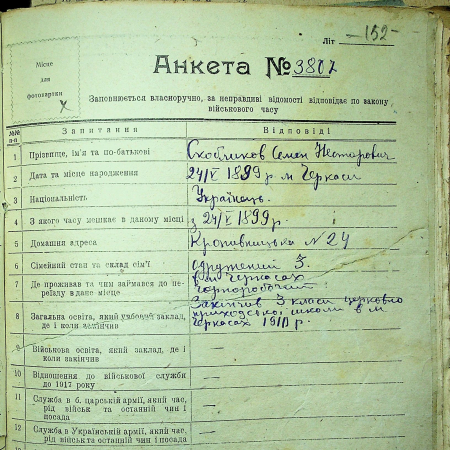 Літ -152-
Місце
для
фотокартки
Анкета № 3807
Заповнюється власноручно, за неправдиві відомості відповідає по закону
військового часу
№№ п-п Запитання Відповіді
1 Прізвище, ім'я та по-батькові Скобчиков Семен Несторович
2 Дата та місце народження 24/V 1899 р. м Черкаси
3 Національність Українець.
4 З якого часу мешкає в даному місці з 24/V 1899 р.
5 Домашня адреса Кропивницька N 24
6 Сімейний стан та склад сім'ї одружений 3.
7 Де проживав та чим займався до переїзду в дане місце в м. Черкасах
чорноробочий
8 Загальна освіта, який учбовий заклад,
де і коли закінчив
Закінчив 3 класи церковно
приходської школи в м.
Черкасах 1910 р.
9 Військова освіта, який заклад, де і
коли закінчив
10 Відношення до військової служби
до 1917 року
11 Служба в б. царській армії, який час,
рід військ та останній чин і
посада
12 Служба в Українській армії, який час,
рід військ та останній чин і посада